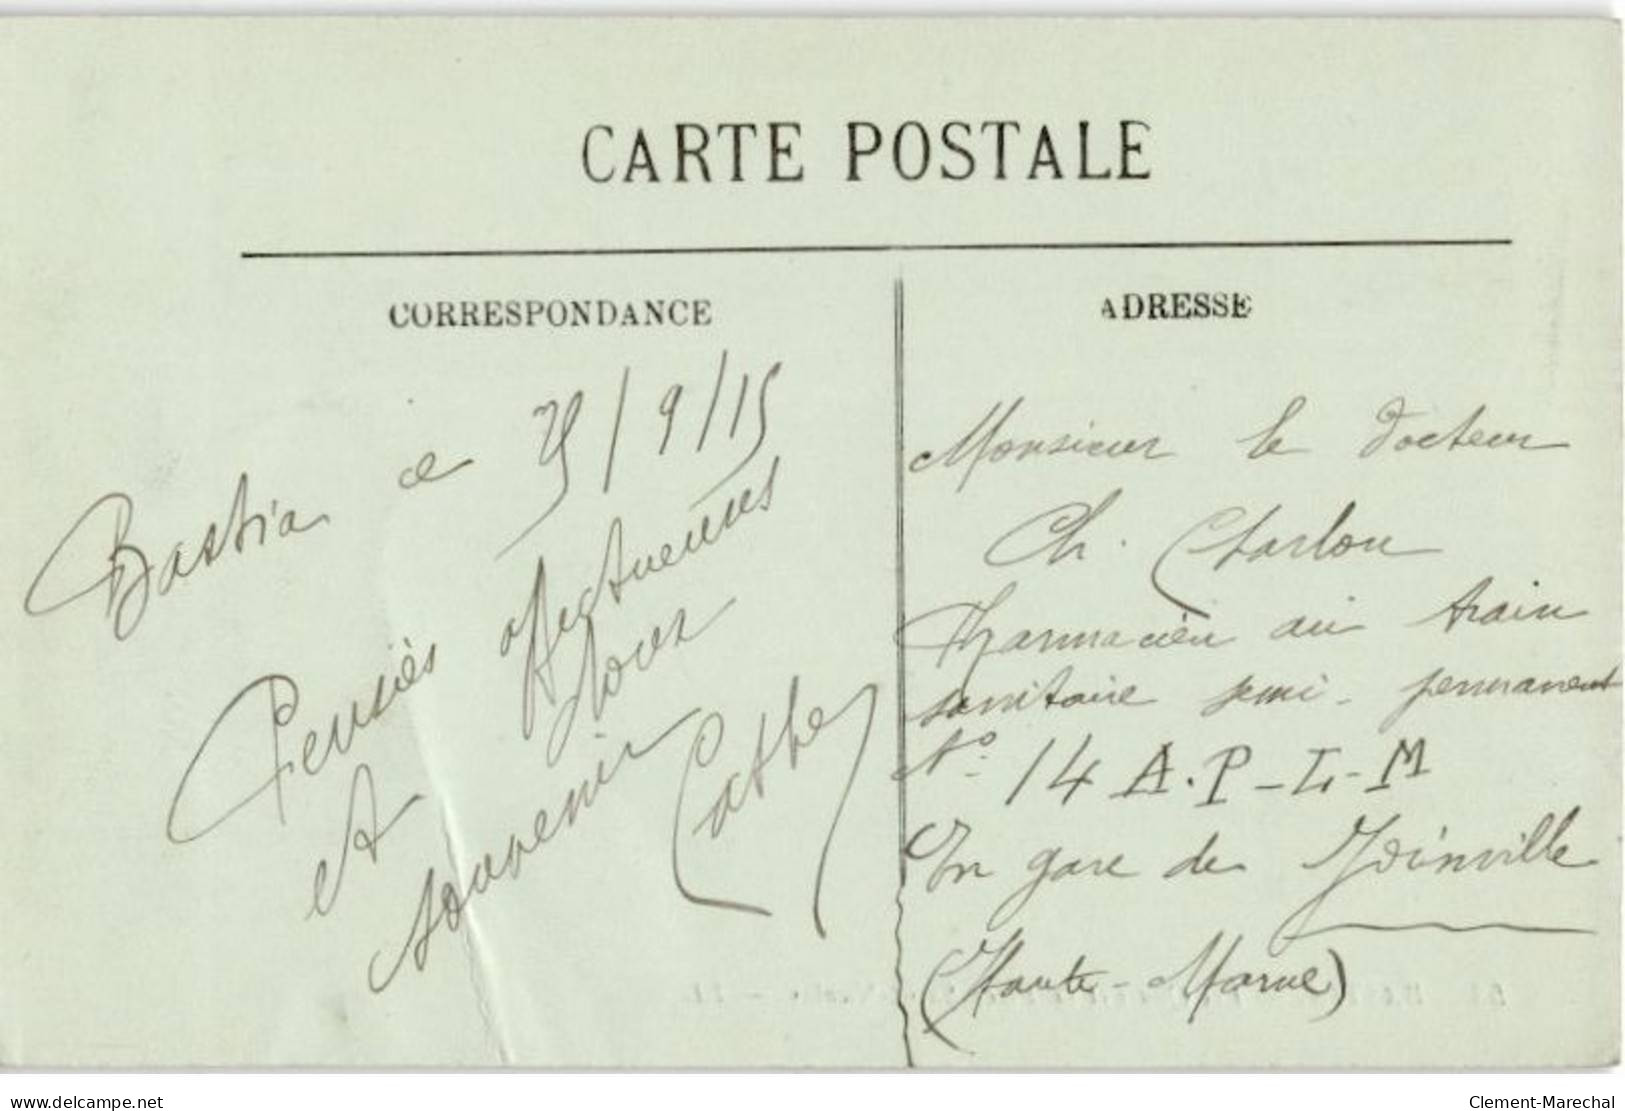 CARTE POSTALE
CORRESPONDANCE
Bastia ce 25/9/15
Pensiès affectueuses
et
souvenir
Cathe
ADRESSE
Monsieur le Docteur
Ch. Charlon
Pharmacien au train
sanitaire semi-permanent
No 14 A.P-L-M
En gare de Joinville
(Haute-Marne)
delcampe.net
Clement-Marechal